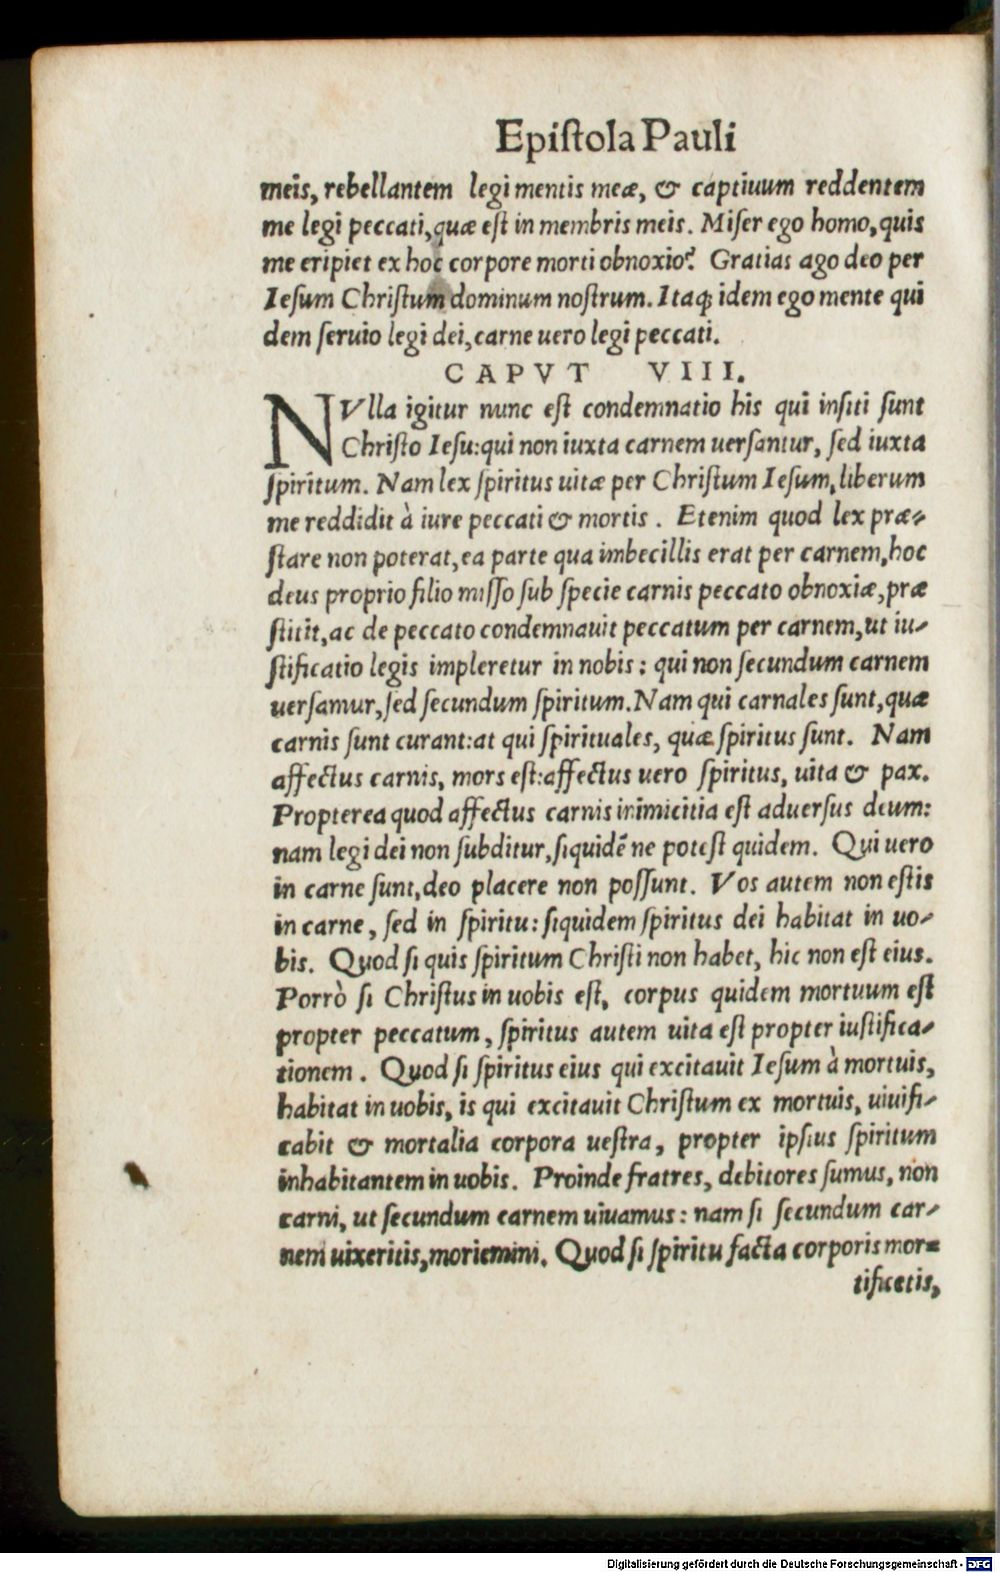 Epiſtola Pauli
meis, rebellantem legi mentis meæ, & captiuum reddentem
me legi peccati, quæ eſt in membris meis. Miſer ego homo, quis
me eripiet ex hoc corpore morti obnoxio? Gratias ago deo per
Ieſum Chriſtum dominum noſtrum. Itaq; idem ego mente qui
dem ſeruio legi dei, carne uero legi peccati.
CAPVT VIII.
NVlla igitur nunc eſt condemnatio his qui inſiti ſunt
Chriſto Ieſu: qui non iuxta carnem uerſantur, ſed iuxta
ſpiritum. Nam lex ſpiritus uitæ per Chriſtum Ieſum, liberum
me reddidit à iure peccati & mortis. Etenim quod lex præ-
ſtare non poterat, ea parte qua imbecillis erat per carnem, hoc
deus proprio filio miſſo ſub ſpecie carnis peccato obnoxiæ, præ
ſtitit, ac de peccato condemnauit peccatum per carnem, ut iu-
ſtificatio legis impleretur in nobis: qui non ſecundum carnem
uerſamur, ſed ſecundum ſpiritum. Nam qui carnales ſunt, quæ
carnis ſunt curant: at qui ſpirituales, quæ ſpiritus ſunt. Nam
affectus carnis, mors eſt: affectus uero ſpiritus, uita & pax.
Propterea quod affectus carnis inimicitia eſt aduerſus deum:
nam legi dei non ſubditur, ſiquidẽ ne poteſt quidem. Qui uero
in carne ſunt, deo placere non poſſunt. Vos autem non eſtis
in carne, ſed in ſpiritu: ſiquidem ſpiritus dei habitat in uo-
bis. Quod ſi quis ſpiritum Chriſti non habet, hic non eſt eius.
Porrò ſi Chriſtus in uobis eſt, corpus quidem mortuum eſt
propter peccatum, ſpiritus autem uita eſt propter iuſtifica-
tionem. Quod ſi ſpiritus eius qui excitauit Ieſum à mortuis,
habitat in uobis, is qui excitauit Chriſtum ex mortuis, uiuifi-
cabit & mortalia corpora ueſtra, propter ipſius ſpiritum
inhabitantem in uobis. Proinde fratres, debitores ſumus, non
carni, ut ſecundum carnem uiuamus: nam ſi ſecundum car-
nem uixeritis, moriemini. Quod ſi ſpiritu facta corporis mor-
tificetis,
Digitalisierung gefördert durch die Deutsche Forschungsgemeinschaft - DFG